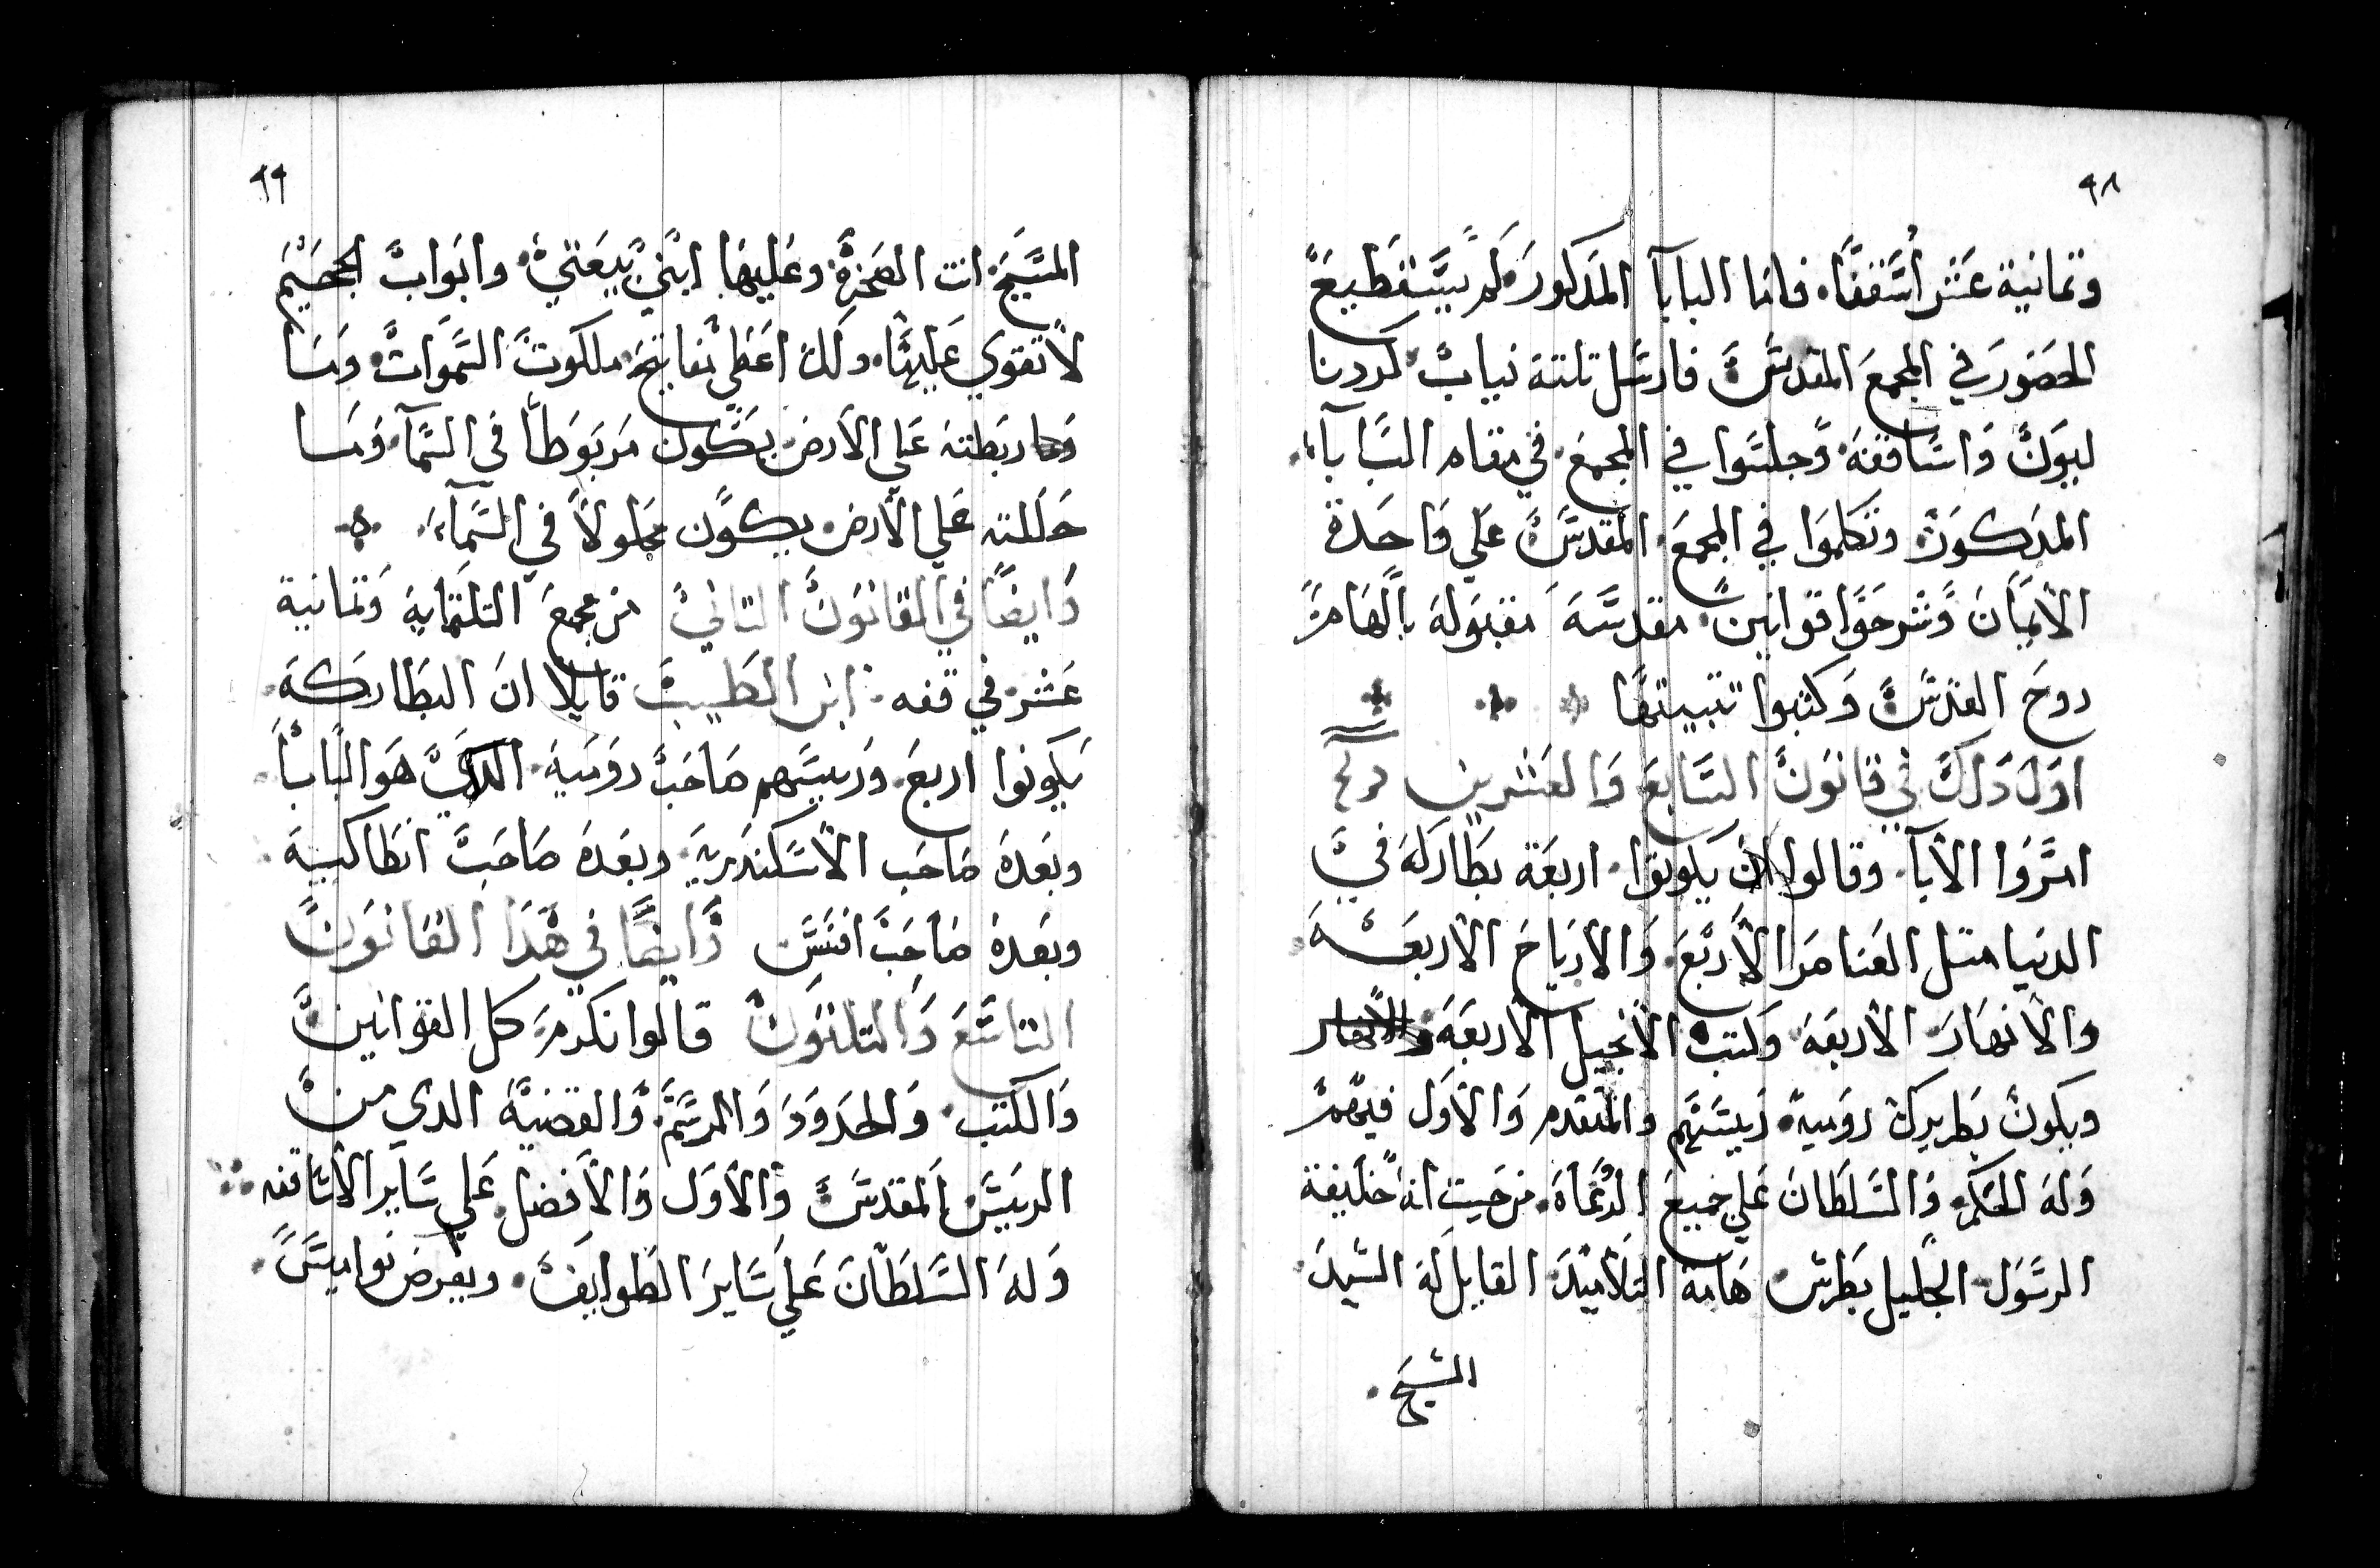 ٩٨
وتمانية عشر أسقفًا. فاما البابا المدكور لم يستطيع
الحضور في المجمع المقدس. فارسل تلتة نياب كردنا
ليوك واساقفه وجلسوا في المجمع. في مقام البابا.
المدكور وتكلموا في المجمع المقدس علي واحدة
الايمان وشرحوا قوانين مقدسة مقبوله بالهام
روح القدس وكتبوا تتبيتها
اول دلك في قانون السابع والعشرين
امروا الابآ وقالوا ان يكونوا. اربعة بطاركه في
الدنيا متل العناصر الأربع. والارياح الاربعه
والانهار الاربعه وكتب الانجيل الاربعه والانهار
ويكون بطريرك روميه. رييسهم والمتقدم والاول فيهم
وله الحكم والسلطان علي جميع الرعاه. من حيت انه خليفة
الرسول الجليل بطرس هامة التلاميد القايل له السيد
المسيح.
٩٩
المسيح انت الصخرة وعليها ابني بيعتي وابواب الجحيم
لا تقوي عليها. ولك اعطي مفاتيح ملكوت السموات وما
وما ربطته علي الارض يكون مربوطًا في السمآ. وما
حللته علي الارض يكون محلولاً في السمآ.
وايضًا في القانون التاني من مجمع التلتماية وتمانية
عشر في قفه ابن الطيب قايلا ان البطاركه
يكونوا اربع. ورييسهم صاحب روميه الدي هو البابا
وبعده صاحب الاسكندريه وبعده صاحب انطاكييه
وبعده صاحب افسس وايضًا في هدا القانون
التاسع والتلتون قالوا نكرم كل القوانين
والكتب. والحدود والمرسم والقضية الدي من
الرييس المقدس والأول والأفضل علي ساير الاساقفه
وله السلطان علي ساير الطوايف. ويفرض نواميس